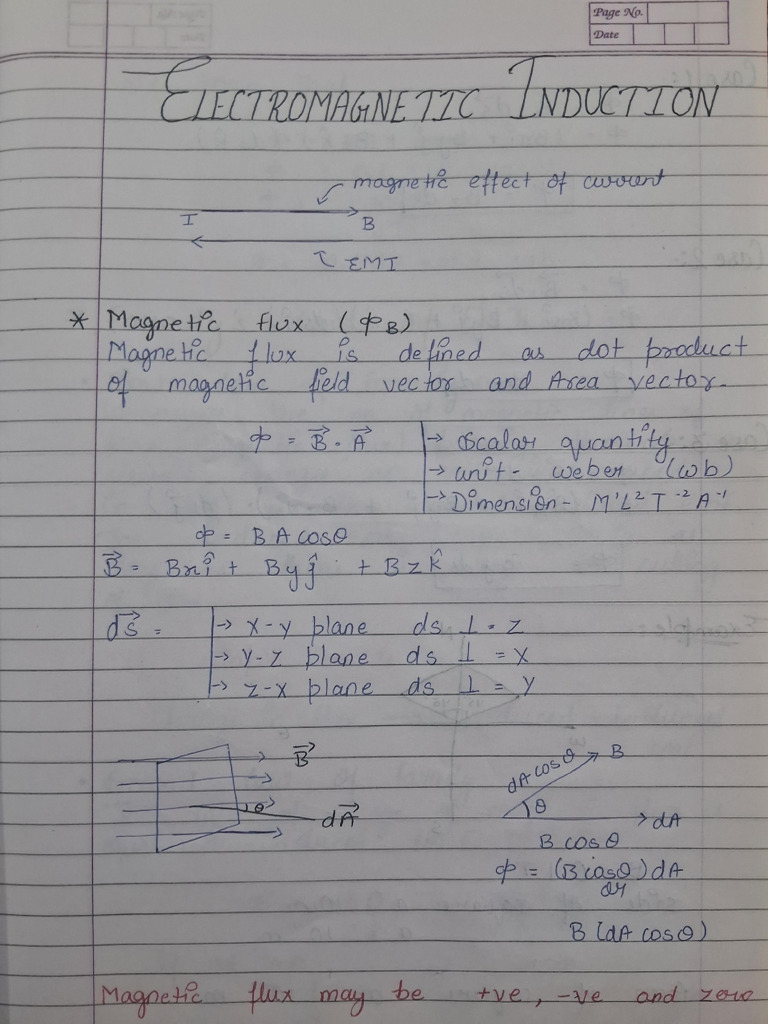 Page No.
Date
ELECTROMAGNETIC INDUCTION
magnetic effect of current
I B
EMI
* Magnetic flux (ΦB)
Magnetic flux is defined as dot product
of magnetic field vector and Area vector.
Φ = B⃗ . A⃗ → Scalar quantity
→ unit - weber (wb)
→ Dimension - M¹L²T⁻²A⁻¹
Φ = BA cosθ
B⃗ = Bxî + Byĵ + Bzk̂
ds⃗ = → x-y plane ds ⊥ = z
→ y-z plane ds ⊥ = x
→ z-x plane ds ⊥ = y
B⃗
θ
dA⃗
dA cosθ B
θ
dA
B cosθ
Φ = (B cosθ) dA
or
B (dA cosθ)
Magnetic flux may be +ve, -ve and zero